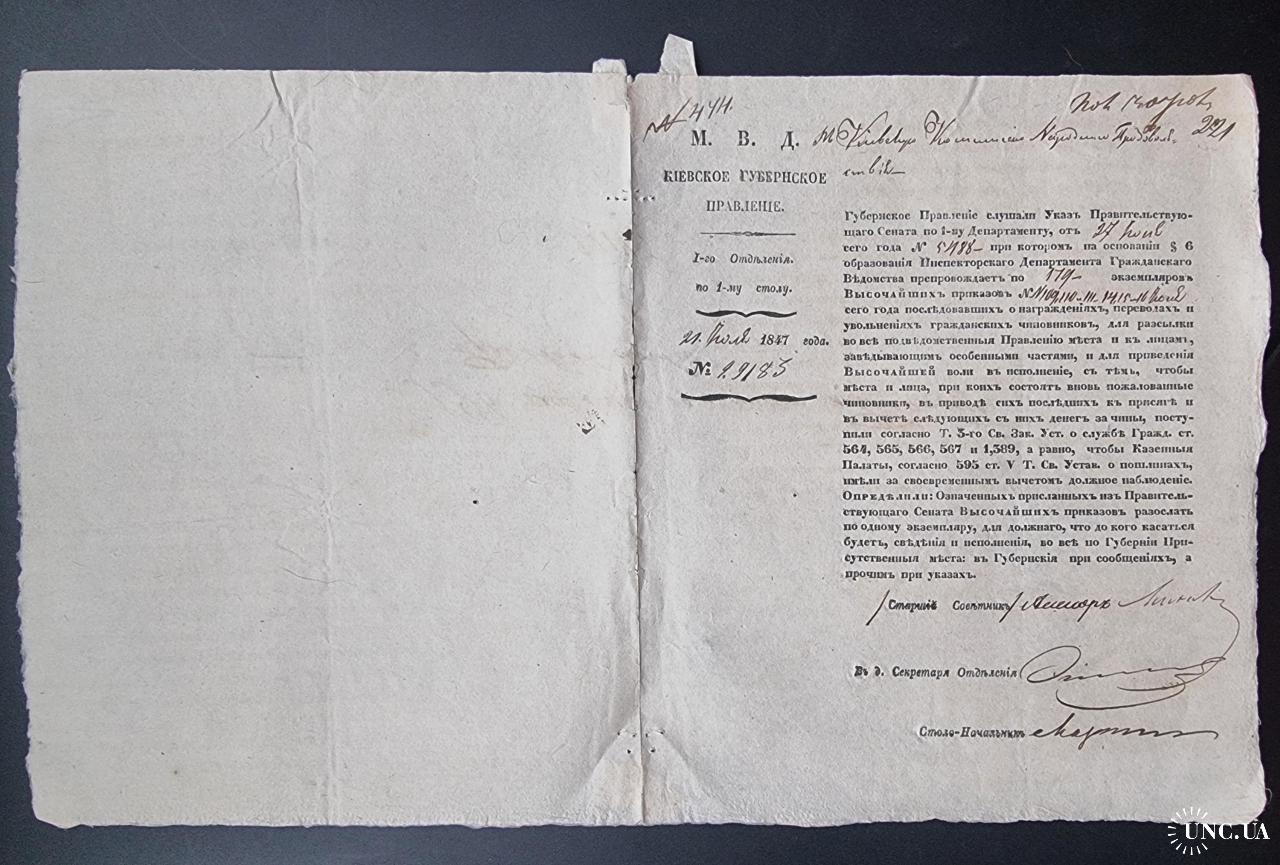 № 474.
М. В. Д.
КІЕВСКОЕ ГУБЕРНСКОЕ
ПРАВЛЕНІЕ.
1-го Отдѣленія.
по 1-му столу.
1847 года.
№
221
Кіевскую Коммисію Народнаго Продоволь-
ствія
Губернское Правленіе слушали Указъ Правительствую-
щаго Сената по 1-му Департаменту, отъ 27 Іюля
сего года № при которомъ на основаніи § 6
образованія Инспекторскаго Департамента Гражданскаго
Вѣдомства препровождаетъ по 179 экземпляровъ
Высочайшихъ приказовъ
сего года послѣдовавшихъ о награжденіяхъ, переводахъ и
увольненіяхъ гражданскихъ чиновниковъ, для разсылки
во всѣ подвѣдомственныя Правленію мѣста и къ лицамъ,
завѣдывающимъ особенными частями, и для приведенія
Высочайшей воли въ исполненіе, съ тѣмъ, чтобы
мѣста и лица, при коихъ состоятъ вновь пожалованные
чиновники, въ приводѣ сихъ послѣднихъ къ присягѣ и
въ вычетѣ слѣдующихъ съ нихъ денегъ за чины, посту-
пили согласно Т. 3-го Св. Зак. Уст. о службѣ Гражд. ст.
564, 565, 566, 567 и 1,389, а равно, чтобы Казенныя
Палаты, согласно 595 ст. V Т. Св. Устав. о пошлинахъ,
имѣли за своевременнымъ вычетомъ должное наблюденіе.
Опредѣлили: Означенныхъ присланныхъ изъ Правитель-
ствующаго Сената Высочайшихъ приказовъ разослать
по одному экземпляру, для должнаго, что до кого касаться
будетъ, свѣдѣнія и исполненія, во всѣ по Губерніи При-
сутственныя мѣста: въ Губернскія при сообщеніяхъ, а
прочимъ при указахъ.
/Старшій Совѣтникъ/ Ассесоръ
Въ д. Секретаря Отдѣленія
Столо-Начальникъ
UNC.UA